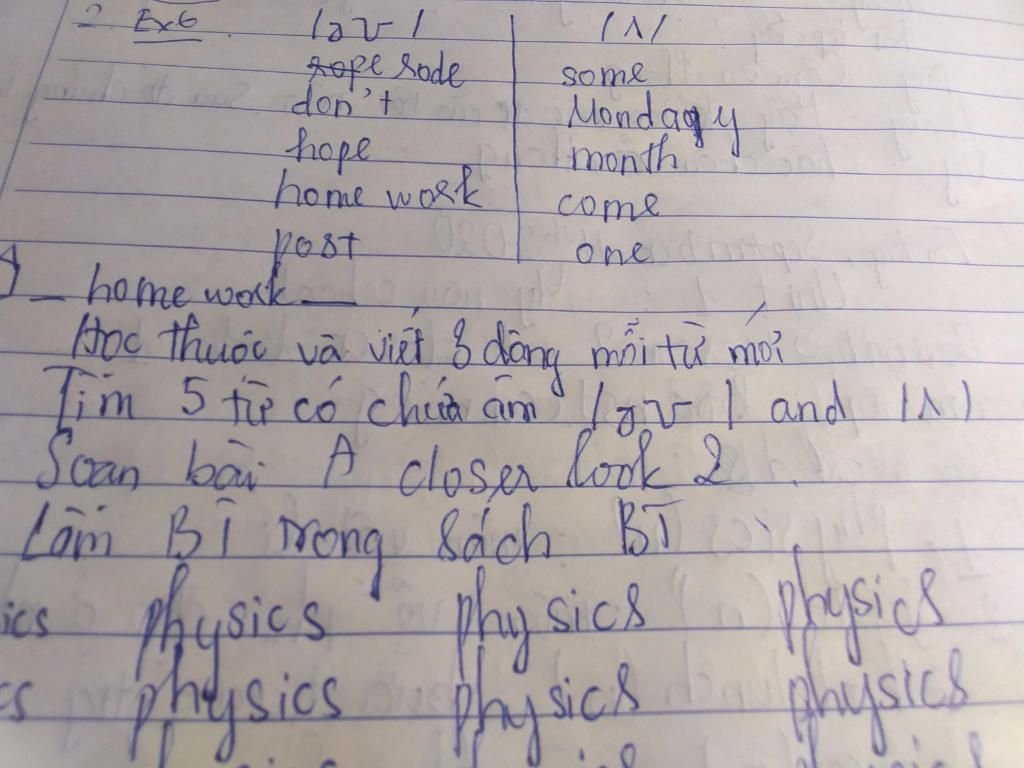 2. Ex6. /əʊ/ /ʌ/
rode some
don't Monday
hope month
home work come
post one
_ home work
Học thuộc và viết 3 dòng mỗi từ mới
Tìm 5 từ có chứa âm /əʊ/ and /ʌ/
Soạn bài A closer look 2.
Làm BT trong sách BT
ics physics physics physics
cs physics physics physics